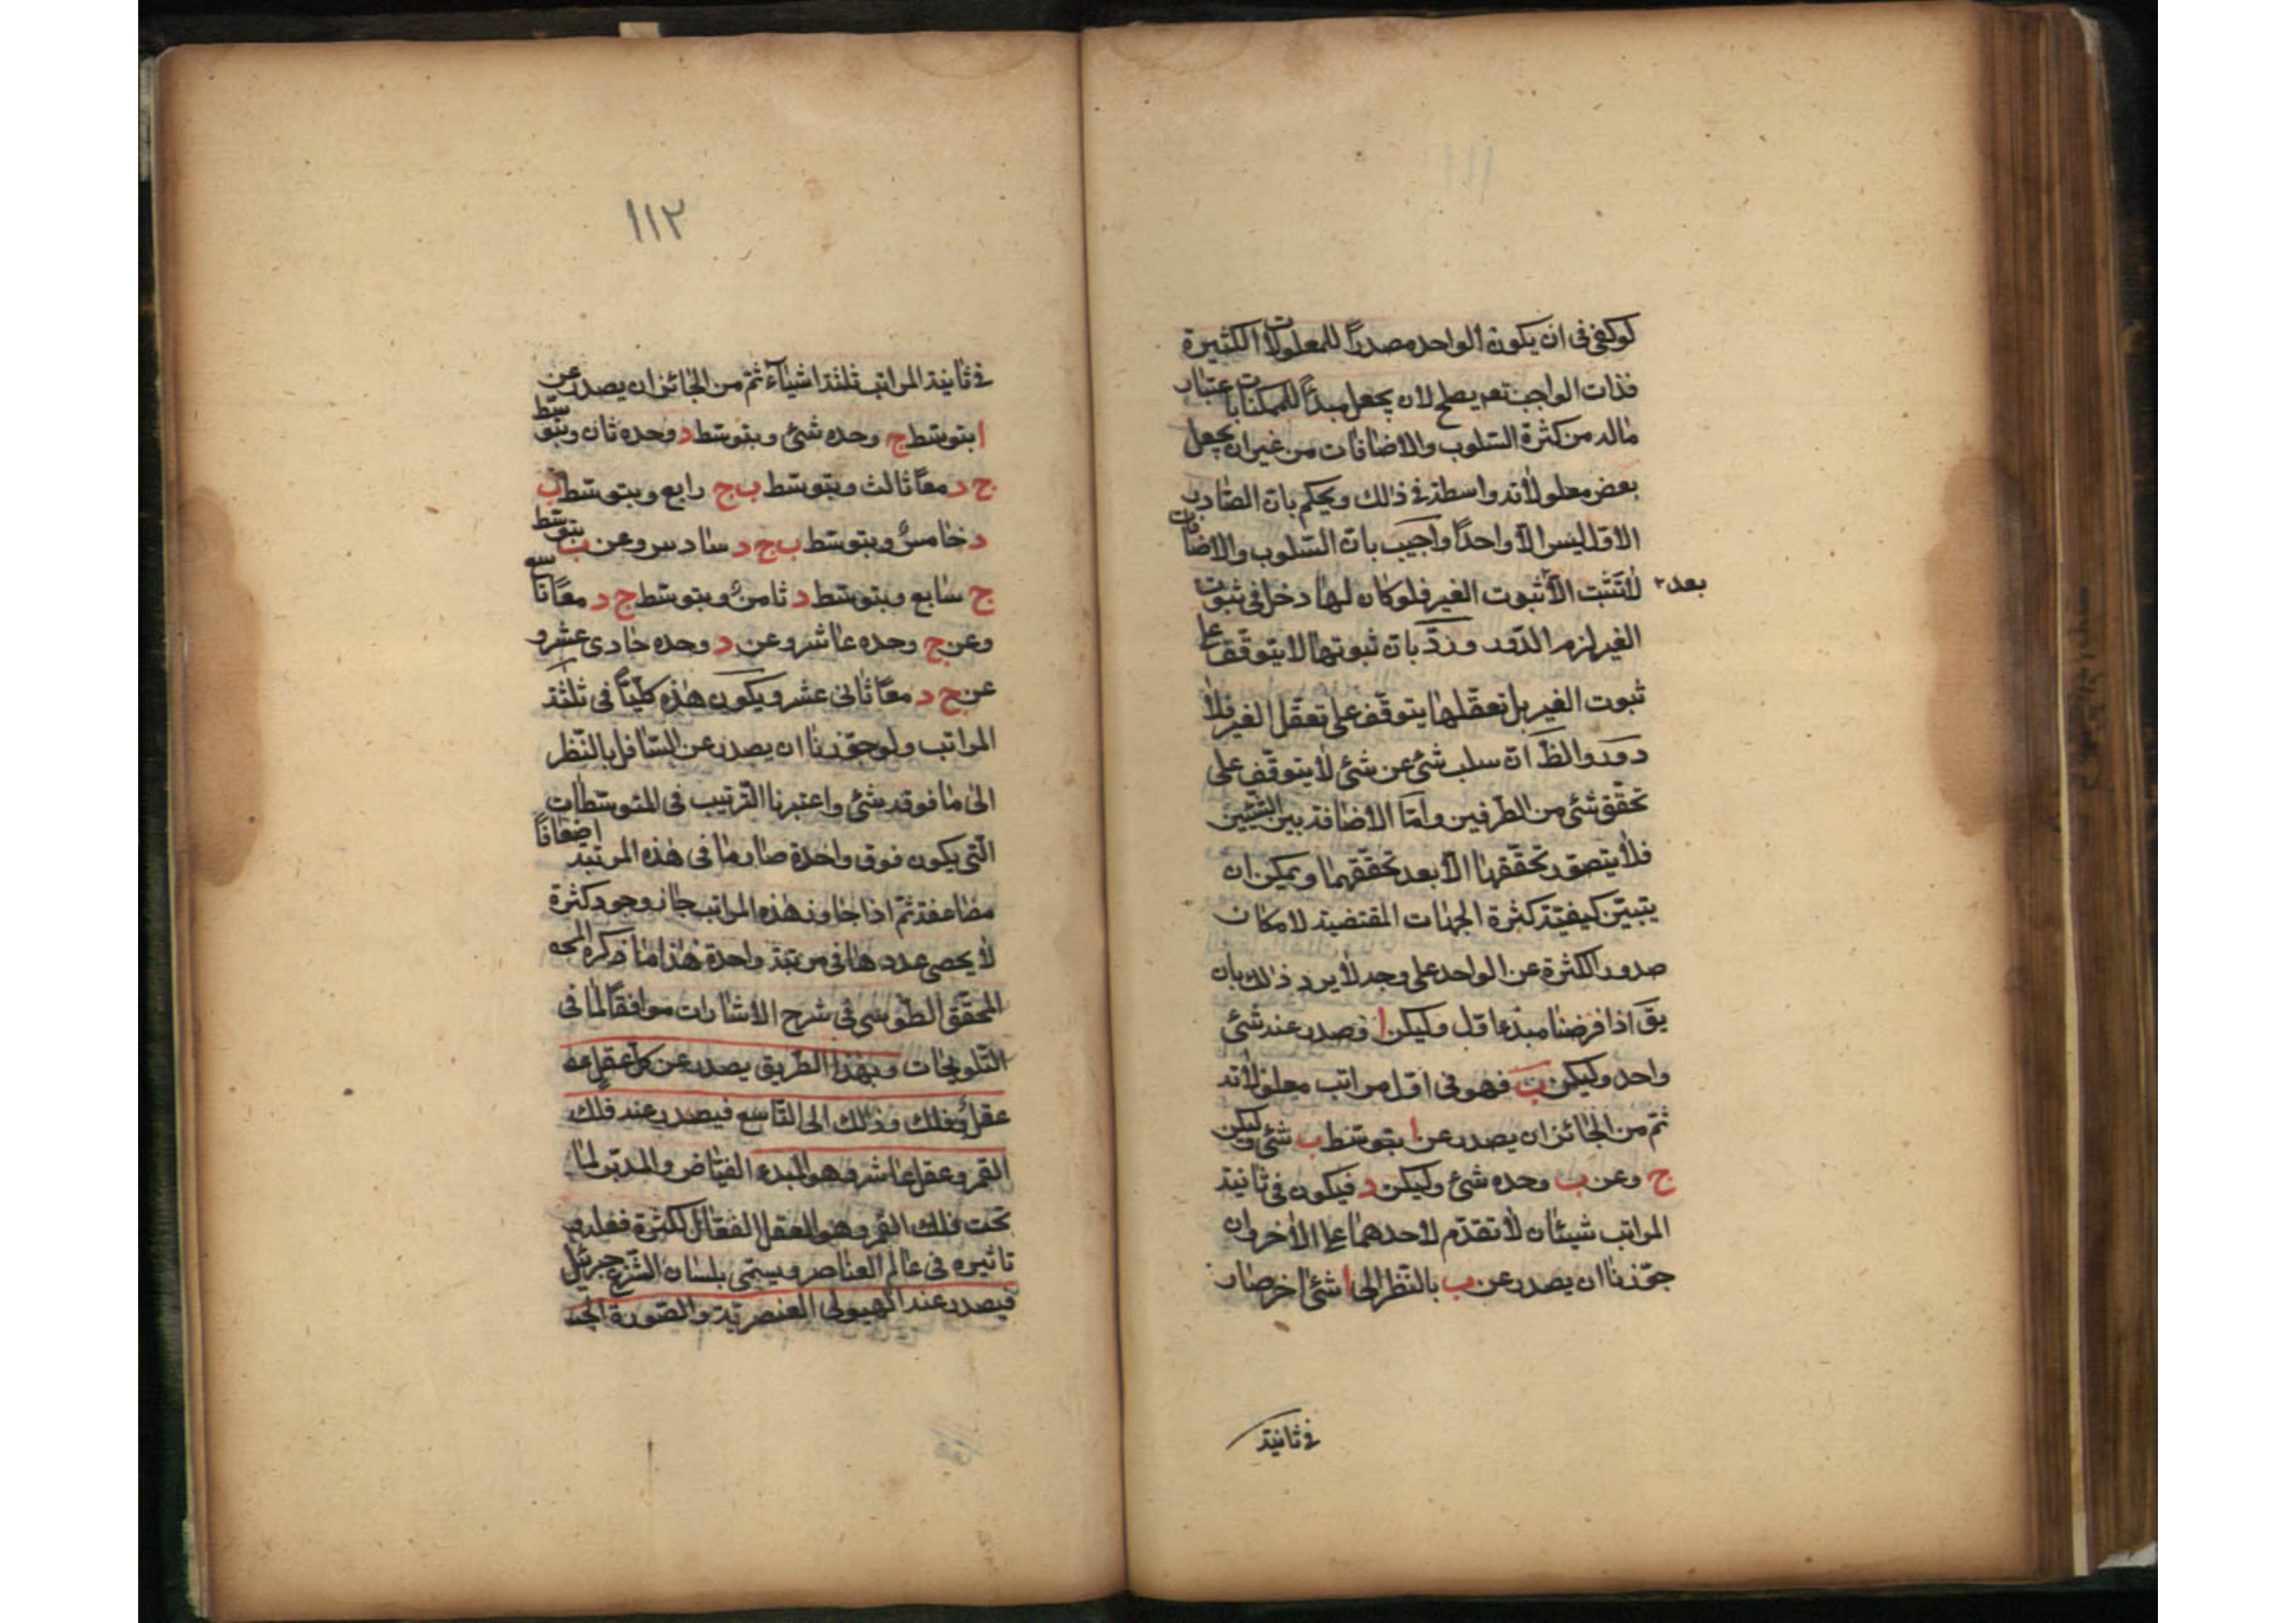 لو كفى فى ان يكون الواحد مصدراً للمعلولات الكثيرة
فذات الواجب تعم يصلح لان يجعل مبدأً للممكنات باعتبار
ماله من كثرة السّلوب والاضافات من غير ان يجعل
بعض معلولاته واسطة فى ذلك ويحكم بان الصّادر
الاوّل ليس الّا واحداً واجيب بان السّلوب والاضافات
لا تثبت الّا ثبوت الغير فلو كان لها دخل فى ثبوت
بعد
الغير لزم الدّور وردّ بان ثبوتها لا يتوقّف على
ثبوت الغير بل تعقّلها يتوقّف على تعقّل الغير فلا
دور والظّ انّ سلب شئ عن شئ لا يتوقّف على
تحقّق شئ من الطرفين وامّا الاضافة بين الشيئين
فلا يتصوّر تحقّقها الّا بعد تحقّقهما ويمكن ان
يتبيّن كيفيّة كثرة الجهات المقتضية لامكان
صدور الكثرة عن الواحد على وجه لا يرد ذلك بان
يقَ اذا فرضنا مبدءا اوّل وليكن ا وصدر عنه شئ
واحد وليكن ب فهو فى اوّل مراتب معلولاته
ثمّ من الجائز ان يصدر عن ا بتوسّط ب شئ وليكن
ج وعن ب وحده شئ وليكن د فيكون فى ثانية
المراتب شيئان لا تقدّم لاحدهما على الاخر وان
جوّزنا ان يصدر عن ب بالنّظر الى ا شئ اخر صار
فى ثانية
١١٢
فى ثانية المراتب ثلثة اشياء ثمّ من الجائز ان يصدر عن
ا بتوسّط ج وحده شئ وبتوسّط د وحده ثان وبتوسّط
ج د معاً ثالث وبتوسّط ب ج رابع وبتوسّط ب
د خامس وبتوسّط ب ج د سادس وعن ب بتوسّط
ج سابع وبتوسّط د ثامن وبتوسّط ج د معاً تاسع
وعن ج وحده عاشر وعن د وحده حادى عشر و
عن ج د معاً ثانى عشر ويكون هذه كلّها فى ثلثة
المراتب ولو جوّزنا ان يصدر عن السّافل بالنّظر
الى ما فوقه شئ واعتبرنا التّرتيب فى المتوسّطات
الّتى يكون فوق واحدة صار ما فى هذه المرتبة اضعافاً
مضاعفة ثمّ اذا جاوز هذه المراتب جاز وجود كثرة
لا يحصى عددها فى مرتبة واحدة هذا ما ذكره
المحقّق الطّوسى فى شرح الاشارات موافقاً لما فى
التّلويحات وبهذا الطّريق يصدر عن كلّ عقل
عقل وفلك وذلك الى التّاسع فيصدر عنه فلك
القمر وعقل عاشر وهو المبدء الفيّاض والمدبّر لما
تحت فلك القمر وهو العقل الفعّال لكثرة فعله و
تاثيره فى عالم العناصر ويسمّى بلسان الشّرع جبرئيل
فيصدر عنه الهيولى العنصريّة والصّورة